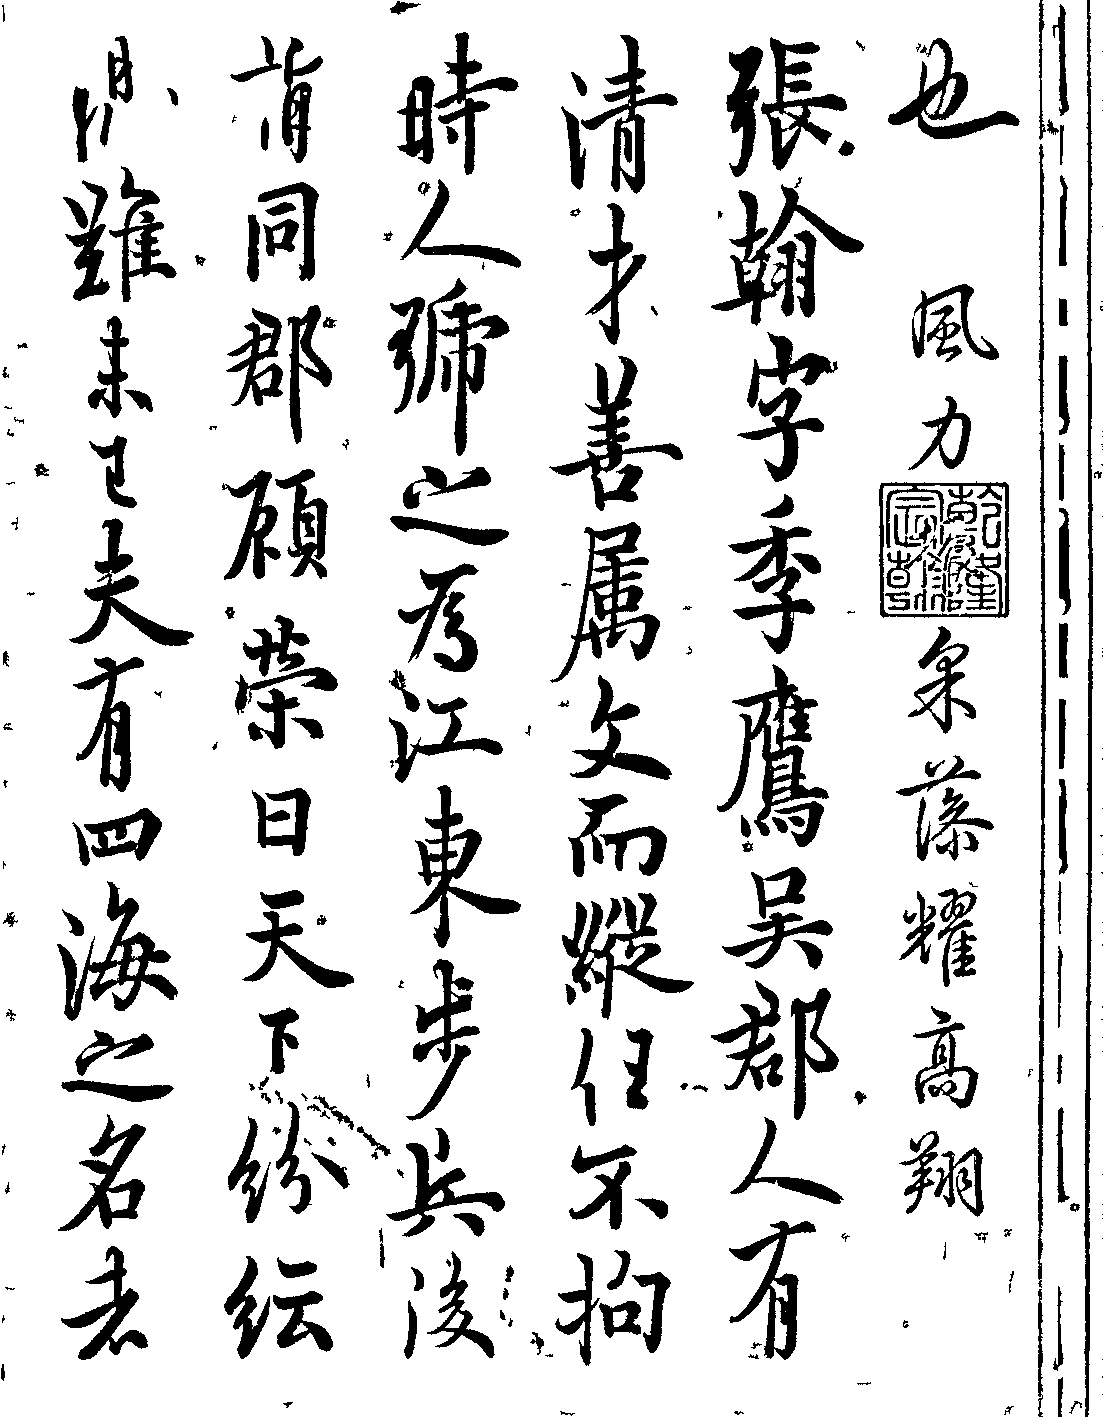 也 風力 采藻耀高翔
張翰字季鷹吳郡人有
清才善属文而縱任不拘
時人號之為江東步兵後
謂同郡顧榮曰天下紛紜
難未已夫有四海之名者